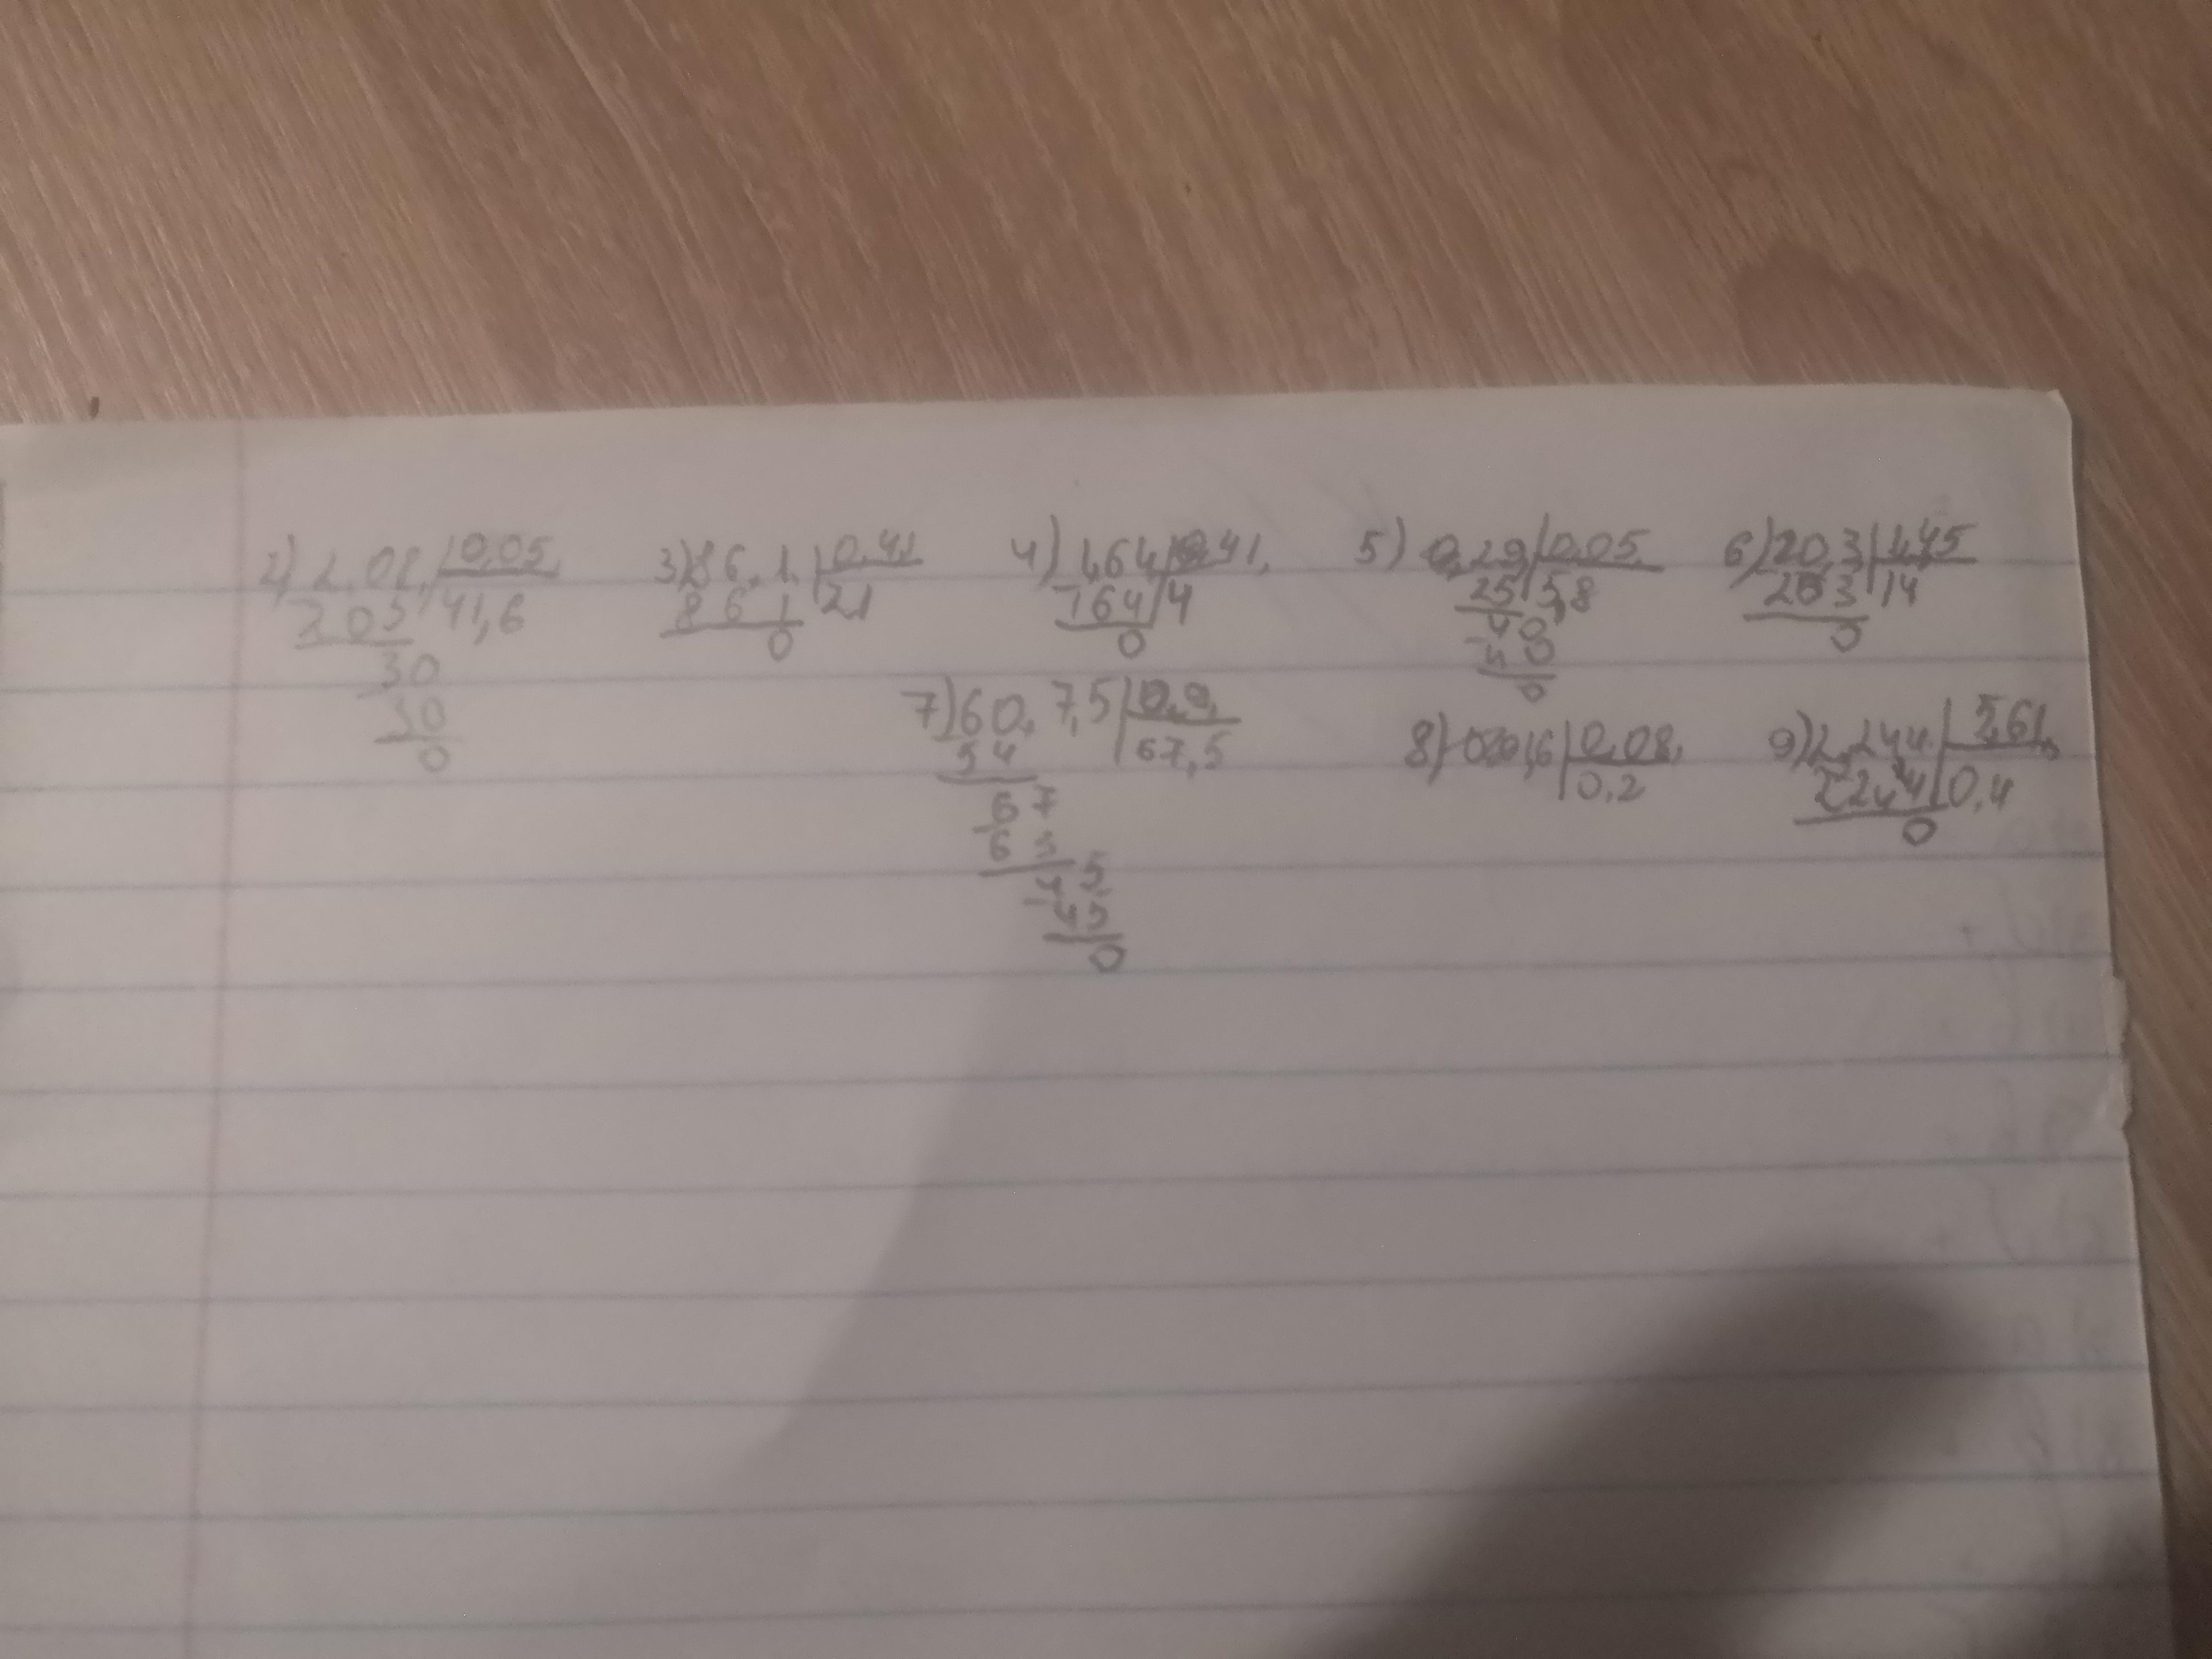 2) 2,08, | 0,05, 3) 86,1, | 0,41 4) 1,64 | 0,41, 5) 0,29 | 0,05, 6) 20,3 | 1,45
205 41,6 861 21 164 4 25 5,8 203 14
30 0 0 40 0
30 40
0 0
7) 60,7,5 | 0,9, 8) 0,16 | 0,08, 9) 2,244 | 5,61,
54 67,5 0,2 2244 0,4
67 0
63
45
45
0